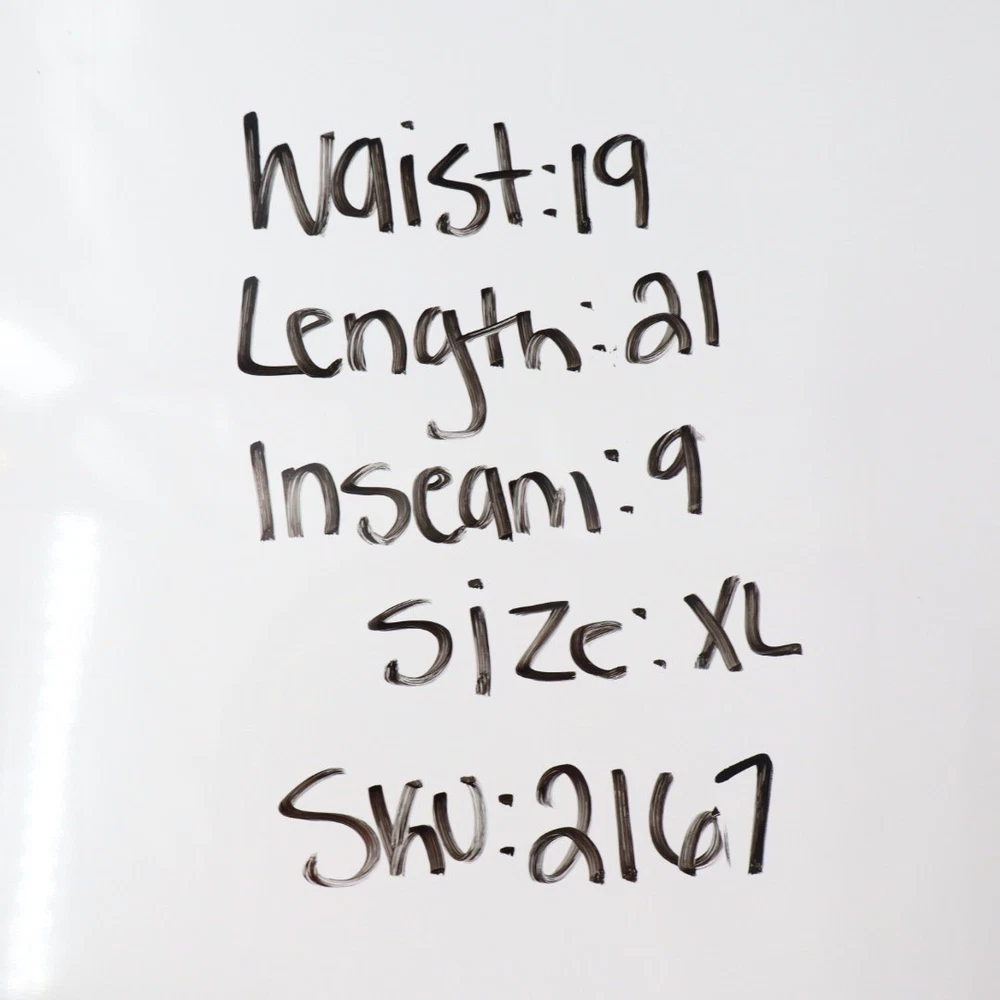 Waist:19
Length:21
Inseam:9
Size:XL
SKU:2167